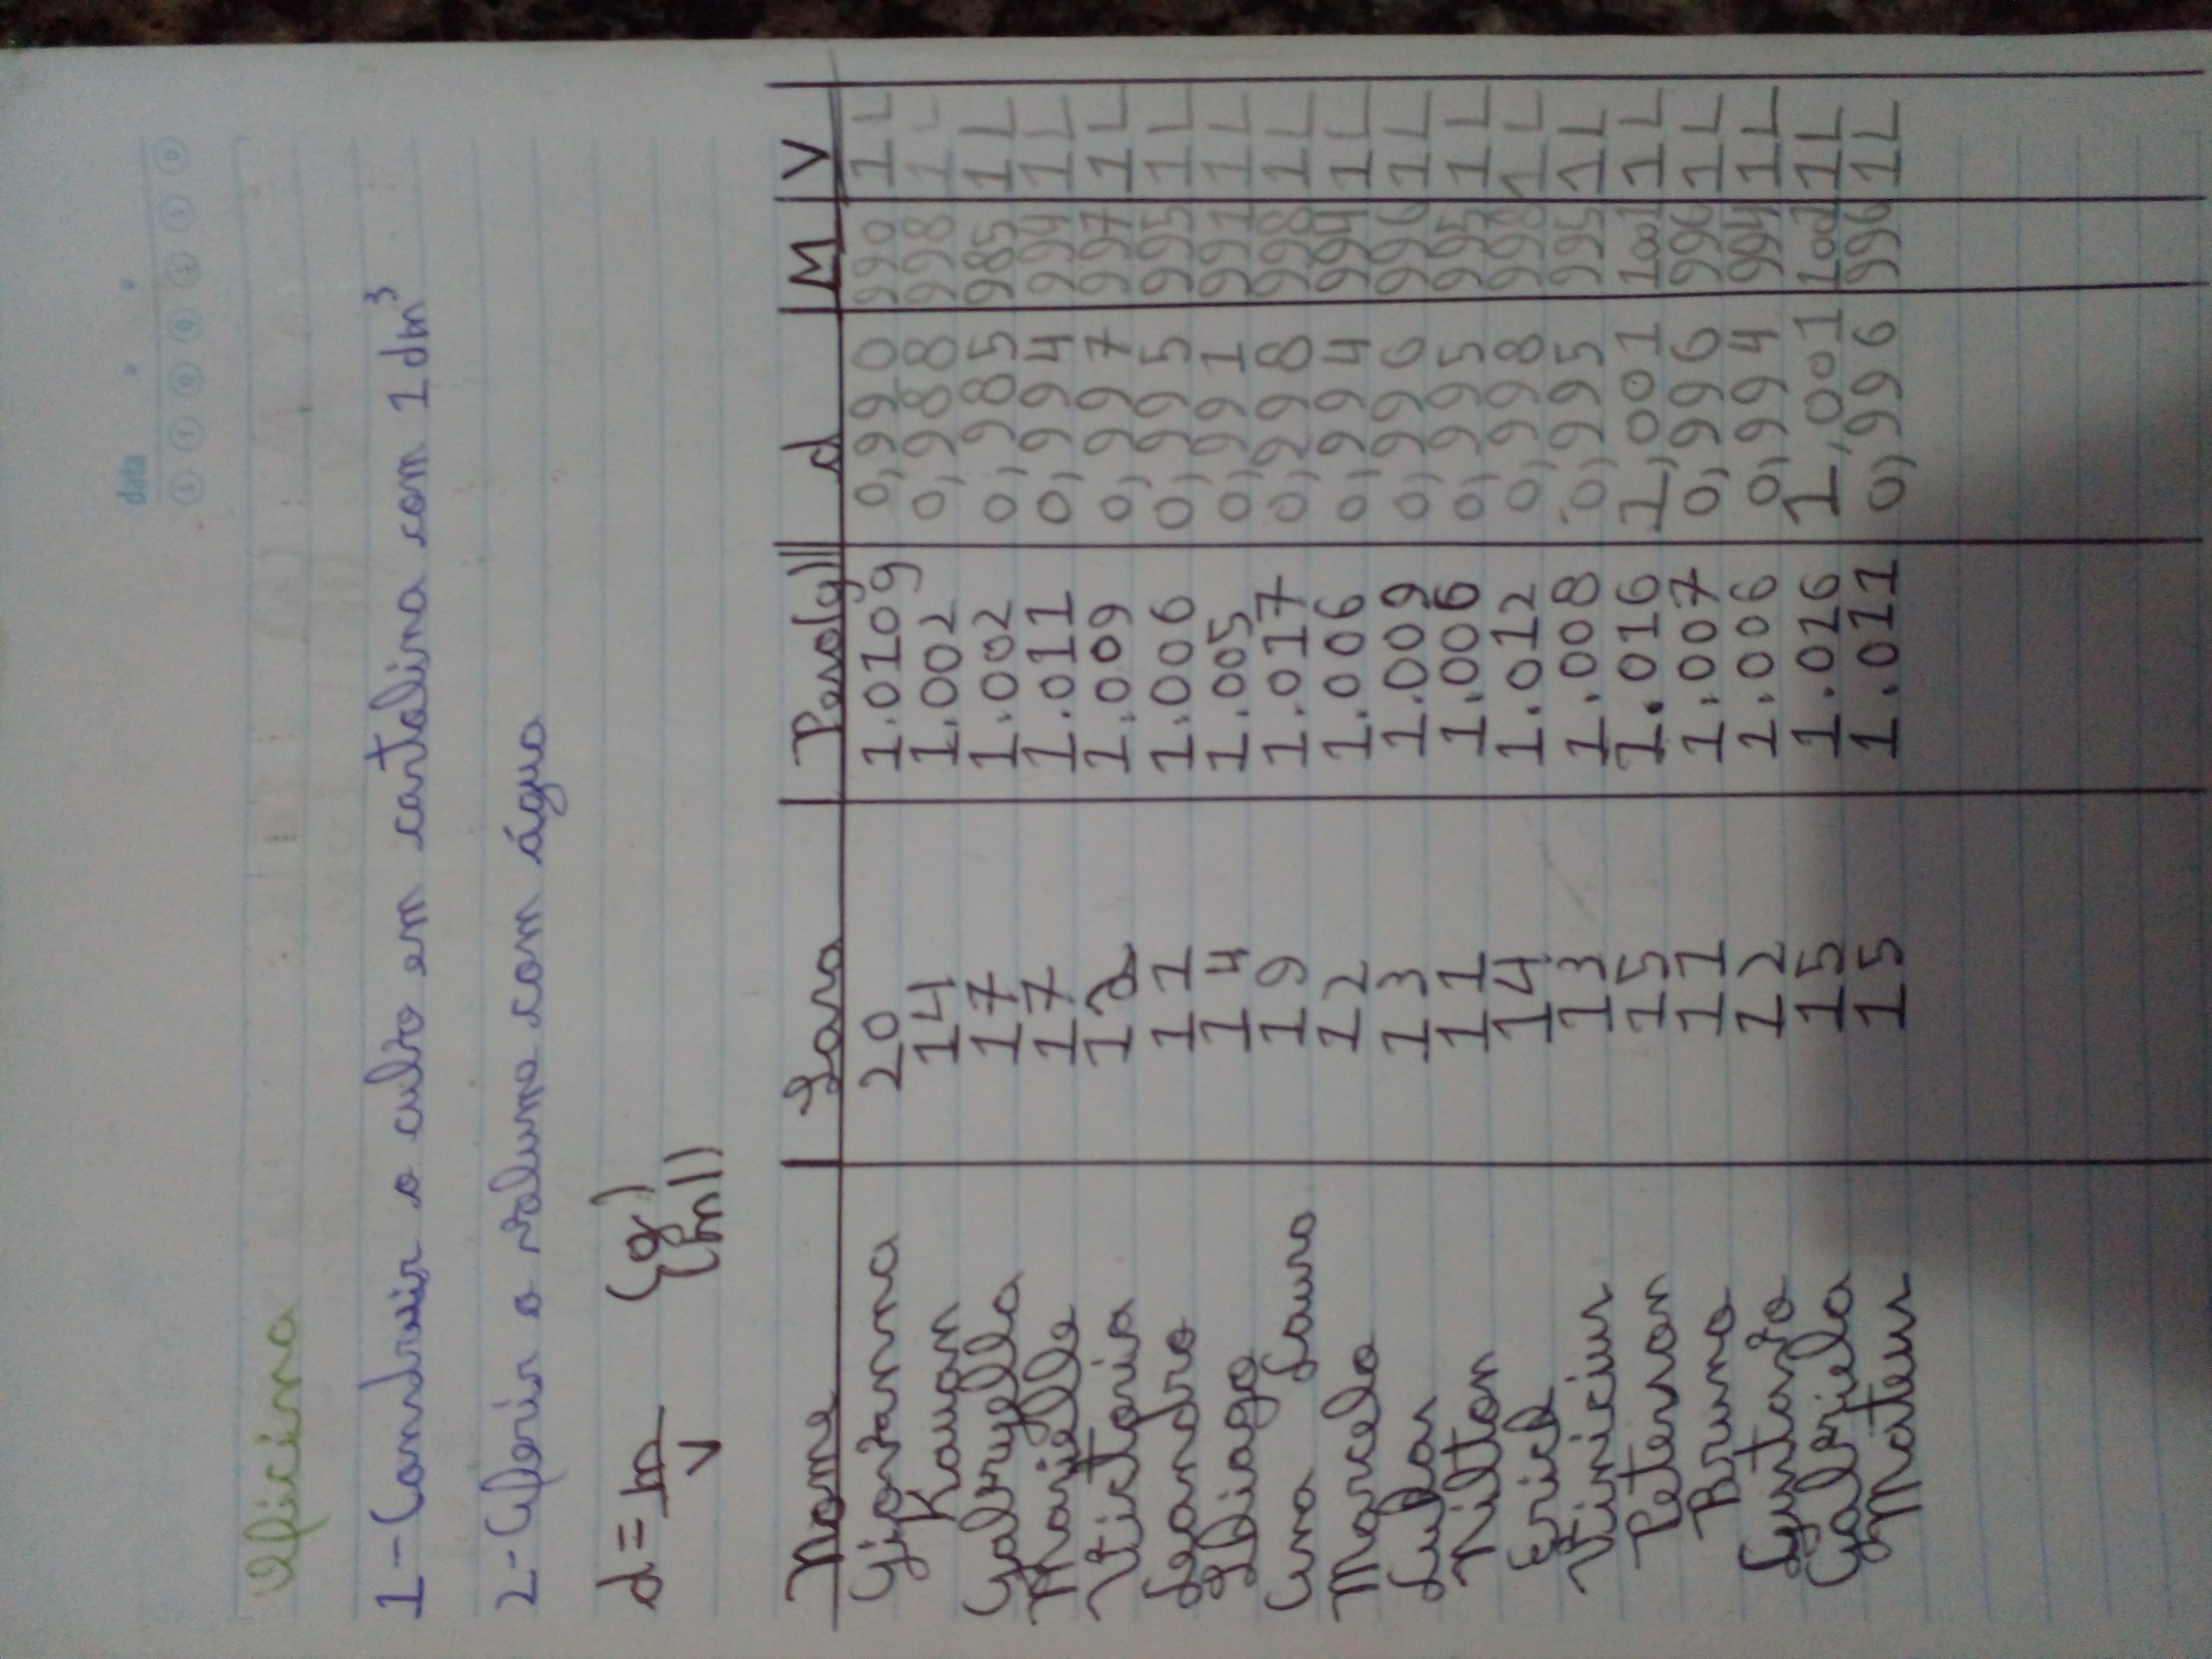 data
Oficina
1-Construir o cubo em cartolina com 1dm³
2-Aferir o volume com água
d = m (g)
V (ml)
Nome Tara Peso(g) d M V
Giovanna 20 1.010g 0,990 990 1L
Kauan 14 1.002 0,988 998 1L
Gabryella 17 1.002 0,985 985 1L
Marielle 17 1.011 0,994 994 1L
Victoria 12 1.009 0,997 997 1L
Leandro 11 1.006 0,995 995 1L
Thiago 14 1.005 0,991 991 1L
Ana Laura 19 1.017 0,998 998 1L
Marcelo 12 1.006 0,994 994 1L
Lukas 13 1.009 0,996 996 1L
Nilton 11 1.006 0,995 995 1L
Erick 14 1.012 0,998 998 1L
Vinicius 13 1.008 0,995 995 1L
Peterson 15 1.016 1,001 1001 1L
Bruno 11 1.007 0,996 996 1L
12 1.006 0,994 994 1L
Gabriela 15 1.016 1,001 1001 1L
Mateus 15 1.011 0,996 996 1L